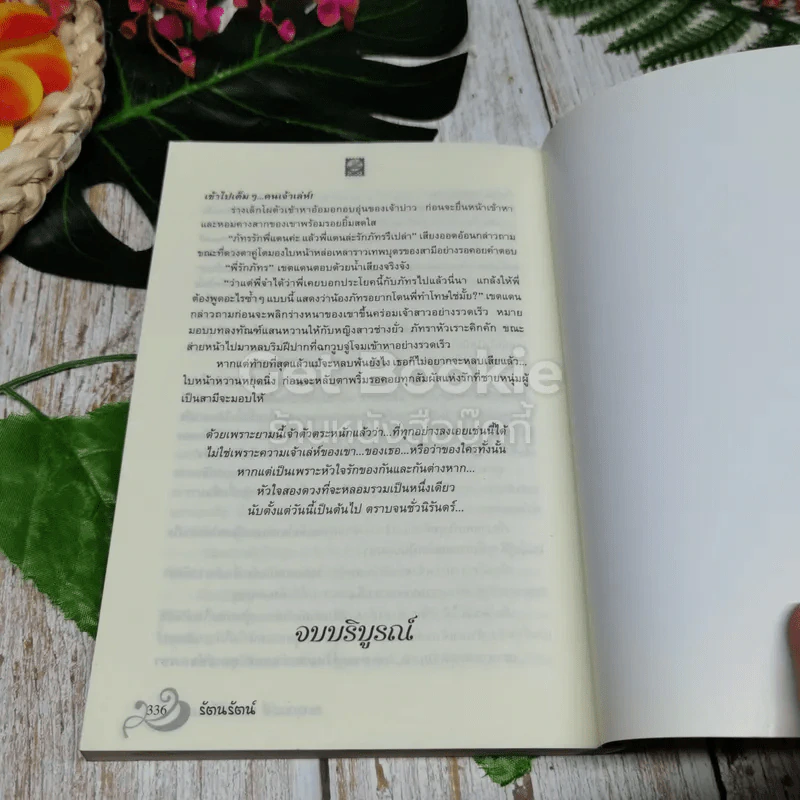 เข้าไปเต็มๆ...คนเจ้าเล่ห์!
ร่างเล็กโผตัวเข้าหาอ้อมอกอบอุ่นของเจ้าบ่าว ก่อนจะยื่นหน้าเข้าหา
และหอมคางสากของเขาพร้อมรอยยิ้มสดใส
“ภัทรรักพี่แดนค่ะ แล้วพี่แดนล่ะรักภัทรรึเปล่า” เสียงออดอ้อนกล่าวถาม
ขณะที่ดวงตาคู่โตมองใบหน้าหล่อเหลาราวเทพบุตรของสามีอย่างรอคอยคำตอบ
“พี่รักภัทร” เขตแดนตอบด้วยน้ำเสียงจริงจัง
“ว่าแต่พี่จำได้ว่าพี่เคยบอกประโยคนี้กับภัทรไปแล้วนี่นา แกล้งให้พี่
ต้องพูดอะไรซ้ำๆ แบบนี้ แสดงว่าน้องภัทรอยากโดนพี่ทำโทษใช่มั้ย?” เขตแดน
กล่าวถามก่อนจะพลิกร่างหนาของเขาขึ้นคร่อมเจ้าสาวอย่างรวดเร็ว หมาย
มอบบทลงทัณฑ์แสนหวานให้กับหญิงสาวช่างยั่ว ภัทราหัวเราะคิกคัก ขณะ
ส่ายหน้าไปมาหลบริมฝีปากที่ฉกวูบจู่โจมเข้าหาอย่างรวดเร็ว
หากแต่ท้ายที่สุดแล้วแม้จะหลบพ้นยังไง เธอก็ไม่อยากจะหลบเสียแล้ว...
ใบหน้าหวานหยุดนิ่ง ก่อนจะหลับตาพริ้มรอคอยทุกสัมผัสแห่งรักที่ชายหนุ่มผู้
เป็นสามีจะมอบให้
ด้วยเพราะยามนี้เจ้าตัวตระหนักแล้วว่า...ที่ทุกอย่างลงเอยเช่นนี้ได้
ไม่ใช่เพราะความเจ้าเล่ห์ของเขา...ของเธอ...หรือว่าของใครทั้งนั้น
หากแต่เป็นเพราะหัวใจรักของกันและกันต่างหาก...
หัวใจสองดวงที่จะหลอมรวมเป็นหนึ่งเดียว
นับตั้งแต่วันนี้เป็นต้นไป ตราบจนชั่วนิรันดร์...
Get Bookie
ร้านหนังสือบุ๊กกี้
จบบริบูรณ์
336 รัตนรัตน์